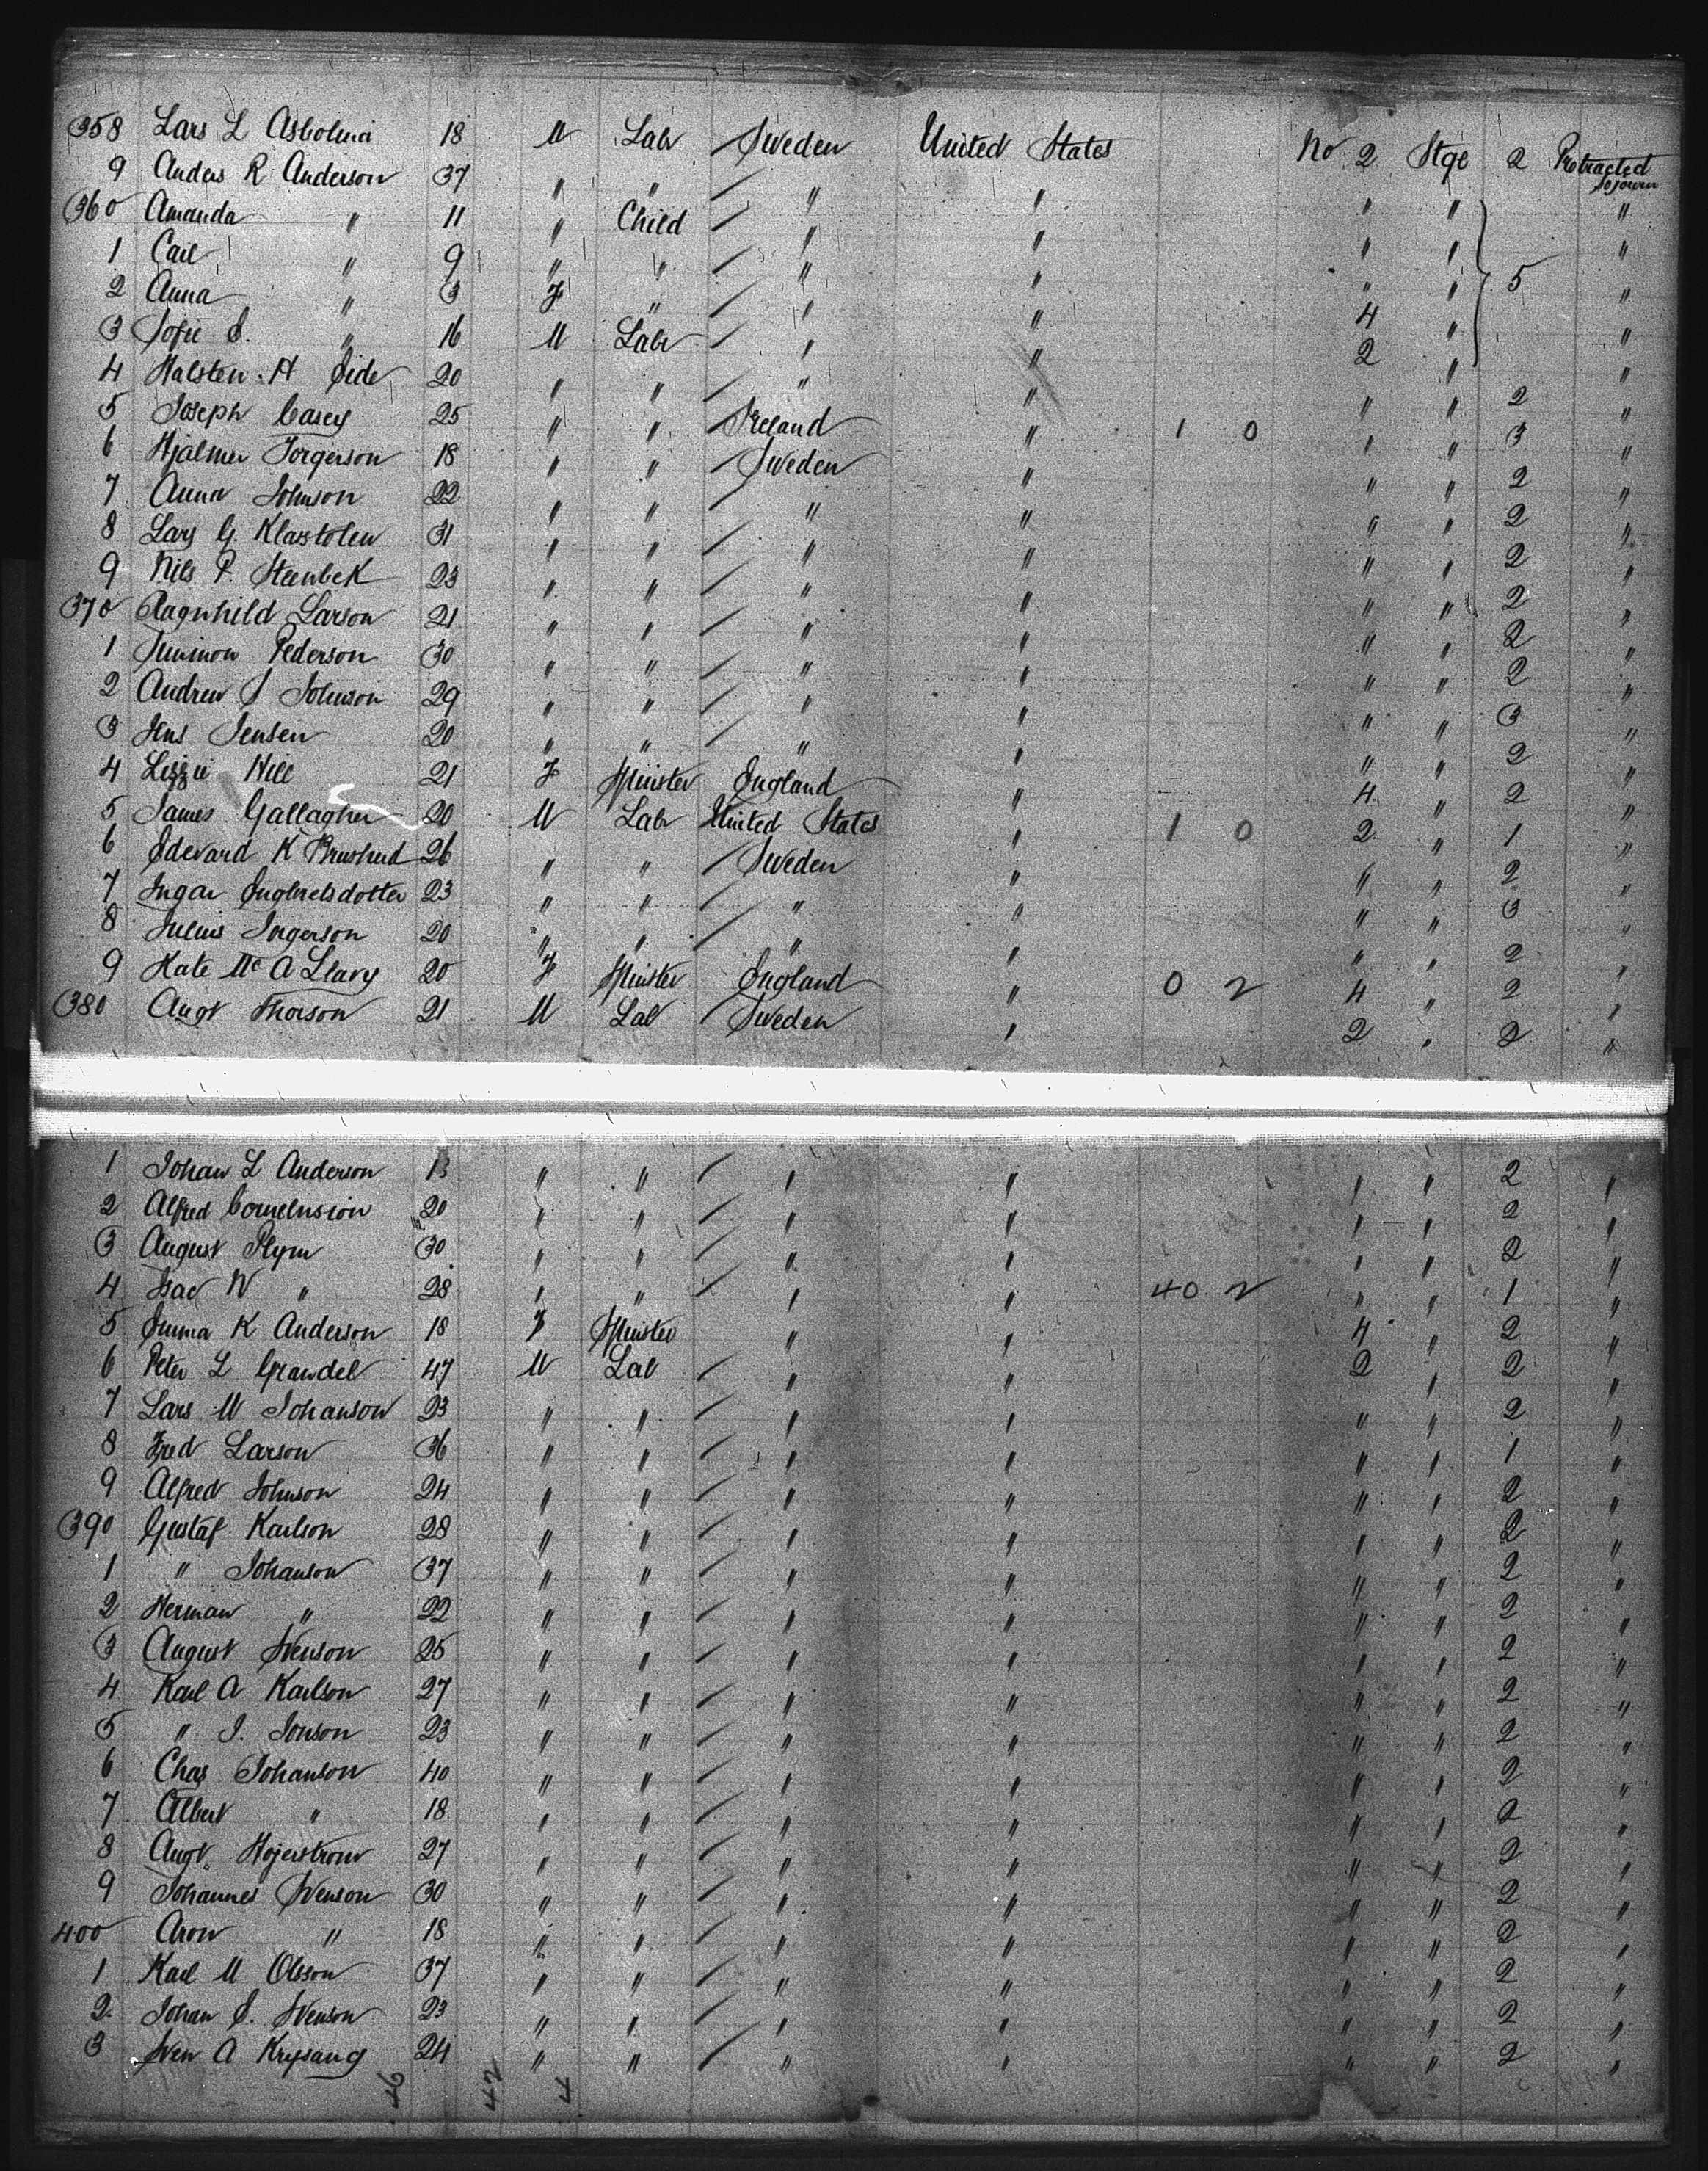 358 Lars L Asbolmia 18 M Labr Sweden United States No 2 Stge 2 Protracted Sojourn
9 Anders R Anderson 37 " " " " " " "
360 Amanda " 11 " Child " " " " "
1 Carl " 9 " " " " " " 5 "
2 Anna " 3 F " " " 4 " "
3 Sofie S. " 16 M Labr " " 2 " "
4 Halsten H Eide 20 " " " " " " 2 "
5 Joseph Casey 25 " " Ireland " 1 0 " " 3 "
6 Hjalmer Torgerson 18 " " Sweden " " " 2 "
7 Anna Johnson 22 " " " " " " 2 "
8 Lars G. Klasstolen 31 " " " " " " 2 "
9 Nils P. Steenbek 23 " " " " " " 2 "
370 Ragnhild Larson 21 " " " " " " 2 "
1 Pederson 30 " " " " " " 2 "
2 Andrew S Johnson 29 " " " " " " 3 "
3 Jens Jensen 20 " " " " " " 2 "
4 Lizzie Hill 21 F Spinster England " 4 " 2 "
5 James Gallagher 20 M Labr United States " 1 0 2 " 1 "
6 Edevard K 26 " " Sweden " " " 2 "
7 Ingar Engbretsdotter 23 " " " " " " 3 "
8 Julius Ingerson 20 " " " " " " 2 "
9 Kate McALlary 20 F Spinster England " 0 2 4 " 2 "
380 Augt Thorson 21 M Lab Sweden " 2 " 2 "
1 Johan L Anderson 13 " " " " " " 2 "
2 Alfred Cornelusion 20 " " " " " " 2 "
3 August Plym 30 " " " " " " 2 "
4 Isac W " 28 " " " " 40 2 " " 1 "
5 Emma K Anderson 18 F Spinster " " 4 " 2 "
6 Peter L Grandel 47 M Lab " " 2 " 2 "
7 Lars M Johanson 23 " " " " " " 2 "
8 Fred Larson 36 " " " " " " 1 "
9 Alfred Johnson 24 " " " " " " 2 "
390 Gustaf Karlson 28 " " " " " " 2 "
1 " Johanson 37 " " " " " " 2 "
2 Herman " 22 " " " " " " 2 "
3 August Svenson 25 " " " " " " 2 "
4 Karl A Karlson 27 " " " " " " 2 "
5 " J. Jonson 23 " " " " " " 2 "
6 Chas Johanson 40 " " " " " " 2 "
7 Albert " 18 " " " " " " 2 "
8 Augt. Hojerstrom 27 " " " " " " 2 "
9 Johannes Svenson 30 " " " " " " 2 "
400 Aron " 18 " " " " " " 2 "
1 Karl M Olsson 37 " " " " " " 2 "
2 Johan S. Svenson 23 " " " " " " 2 "
3 Sven A Krysang 24 " " " " " " 2 "
46 42 4